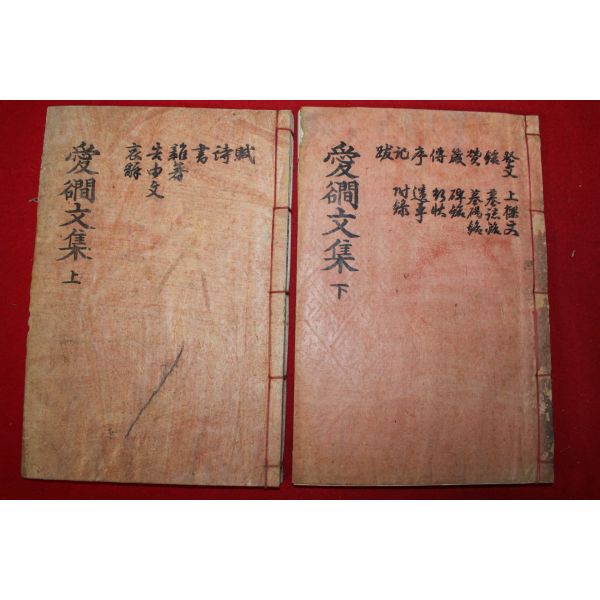 愛磵文集 上
賦
詩
書
雜著
告由文
哀辭
愛磵文集 下
祭文 上樑文
銘 墓誌銘
贊 墓碣銘
箴 碑銘
傳 行狀
序 遺事
記 附錄
跋